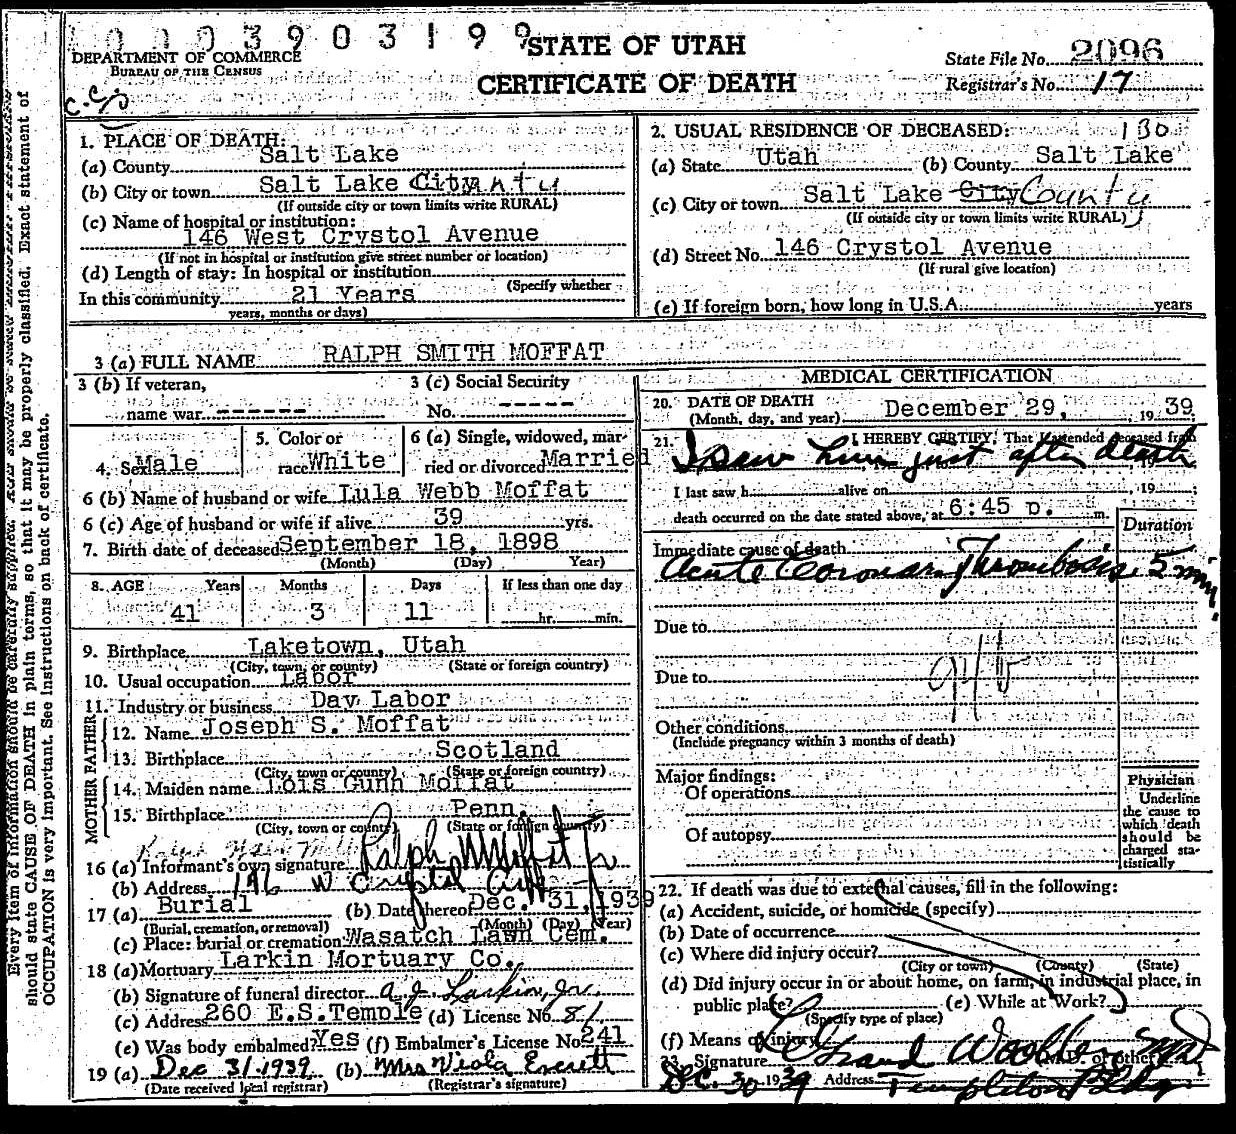 0003903199
STATE OF UTAH
CERTIFICATE OF DEATH
DEPARTMENT OF COMMERCE
BUREAU OF THE CENSUS
State File No. 2096
Registrar's No. 17
Every item of information should be carefully supplied.
should state CAUSE OF DEATH in plain terms, so that it may be properly classified. Exact statement of
OCCUPATION is very important. See instructions on back of certificate.
1. PLACE OF DEATH:
(a) County Salt Lake
(b) City or town Salt Lake
(If outside city or town limits write RURAL)
(c) Name of hospital or institution:
146 West Crystol Avenue
(If not in hospital or institution give street number or location)
(d) Length of stay: In hospital or institution
(Specify whether
In this community 21 Years
years, months or days)
2. USUAL RESIDENCE OF DECEASED: 130
(a) State Utah (b) County Salt Lake
(c) City or town Salt Lake City County
(If outside city or town limits write RURAL)
(d) Street No. 146 Crystol Avenue
(If rural give location)
(e) If foreign born, how long in U.S.A. years
3 (a) FULL NAME RALPH SMITH MOFFAT
3 (b) If veteran,
name war ------
3 (c) Social Security
No. -----
4. Sex Male
5. Color or
race White
6 (a) Single, widowed, mar-
ried or divorced Married
6 (b) Name of husband or wife Lula Webb Moffat
6 (c) Age of husband or wife if alive 39 yrs.
7. Birth date of deceased September 18, 1898
(Month) (Day) Year)
8. AGE Years Months Days If less than one day
41 3 11 hr. min.
9. Birthplace Laketown, Utah
(City, town, or county) (State or foreign country)
10. Usual occupation Labor
11. Industry or business Day Labor
FATHER
12. Name Joseph S. Moffat
13. Birthplace Scotland
(City, town or county) (State or foreign country)
MOTHER
14. Maiden name Lois Gunn Moffat
15. Birthplace Penn.
(City, town or county) (State or foreign country)
16 (a) Informant's own signature Ralph Moffat Jr
(b) Address 146 W Crystal Ave
17 (a) Burial (b) Date thereof Dec. 31, 1939
(Burial, cremation, or removal) (Month) (Day) (Year)
(c) Place: burial or cremation Wasatch Lawn Cem.
18 (a) Mortuary Larkin Mortuary Co.
(b) Signature of funeral director A J Larkin, Jr.
(c) Address 260 E.S.Temple (d) License No. 81
(e) Was body embalmed? Yes (f) Embalmer's License No. 241
19 (a) Dec 31, 1939 (b) Mrs Viola Everett
(Date received local registrar) (Registrar's signature)
MEDICAL CERTIFICATION
20. DATE OF DEATH
(Month, day, and year) December 29, 1939
21. I HEREBY CERTIFY, That I attended deceased from
I saw him just after death
I last saw h alive on , 19 ;
death occurred on the date stated above, at 6:45 p. m.
Duration
Immediate cause of death
Acute Coronary Thrombosis 5 min.
Due to
Due to
94b
Other conditions
(Include pregnancy within 3 months of death)
Major findings:
Of operations
Of autopsy
Physician
Underline
the cause to
which death
should be
charged sta-
tistically
22. If death was due to external causes, fill in the following:
(a) Accident, suicide, or homicide (specify)
(b) Date of occurrence
(c) Where did injury occur?
(City or town) (County) (State)
(d) Did injury occur in or about home, on farm, in industrial place, in
public place? (e) While at Work?
(Specify type of place)
(f) Means of injury
23. Signature M.D. or other
Dec. 30 1939 Address Templeton Bldg